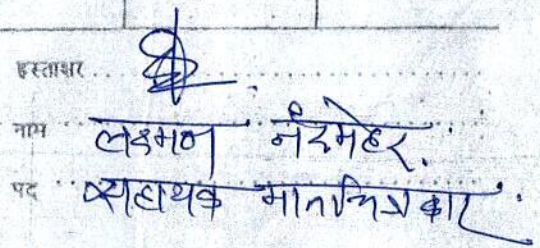 हस्ताक्षर
नाम लक्ष्मण नंदमेहर.
पद सहायक मानचित्रकार